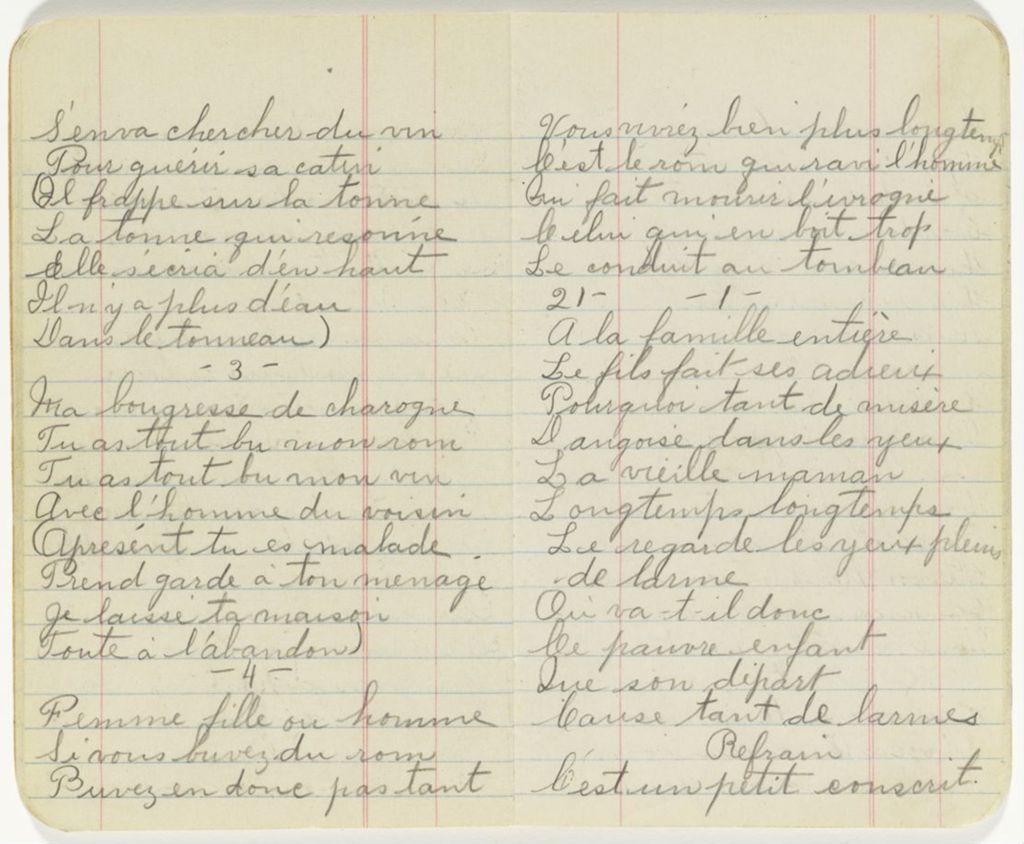 S'en va chercher du vin
Pour guérir sa catin
(Il frappe sur la tonne
La tonne qui resonne
Elle s'écria d'en haut
Il n'y a plus d'eau
Dans le tonneau)
- 3 -
Ma bougresse de charogne
Tu as tout bu mon rom
Tu as tout bu mon vin
Avec l'homme du voisin
(Apresent tu es malade
Prend garde à ton menage
Je laisse ta maison
Toute à l'abandon)
- 4 -
Femme fille ou homme
Si vous buvez du rom
Buvez en donc pas tant
Vous vivrez bien plus longtemps
C'est le rom qui ravi l'homme
Qui fait mourir l'ivrogne
Celui qui en boit trop
Le conduit au tombeau
21 - - 1 -
A la famille entière
Le fils fait ses adieux
Pourquoi tant de misère
D'angoise dans les yeux
La vieille maman
Longtemps longtemps
Le regarde les yeux pleins
de larme
Où va-t-il donc
Ce pauvre enfant
Que son départ
Cause tant de larmes
Refrain
C'est un petit conscrit.